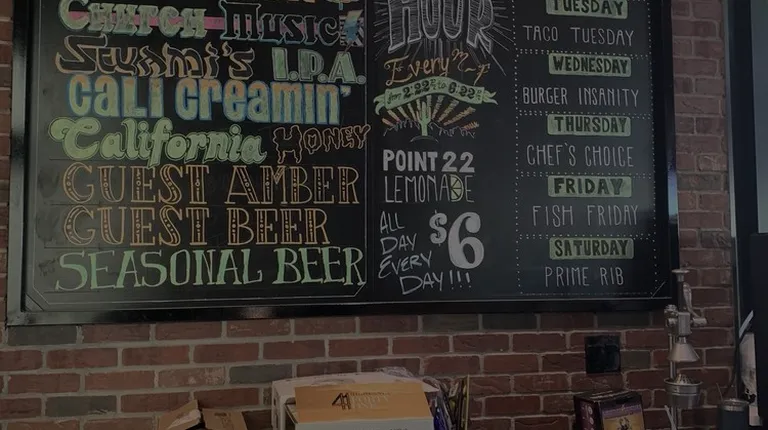 Church Music
Scrimi's I.P.A.
Cali Creamin'
California Honey
GUEST AMBER
GUEST BEER
SEASONAL BEER
HOUR
Every M-F
from 2:22 to 6:22
POINT 22
LEMONADE
ALL
DAY
EVERY
DAY!!!
$6
TUESDAY
TACO TUESDAY
WEDNESDAY
BURGER INSANITY
THURSDAY
CHEF'S CHOICE
FRIDAY
FISH FRIDAY
SATURDAY
PRIME RIB